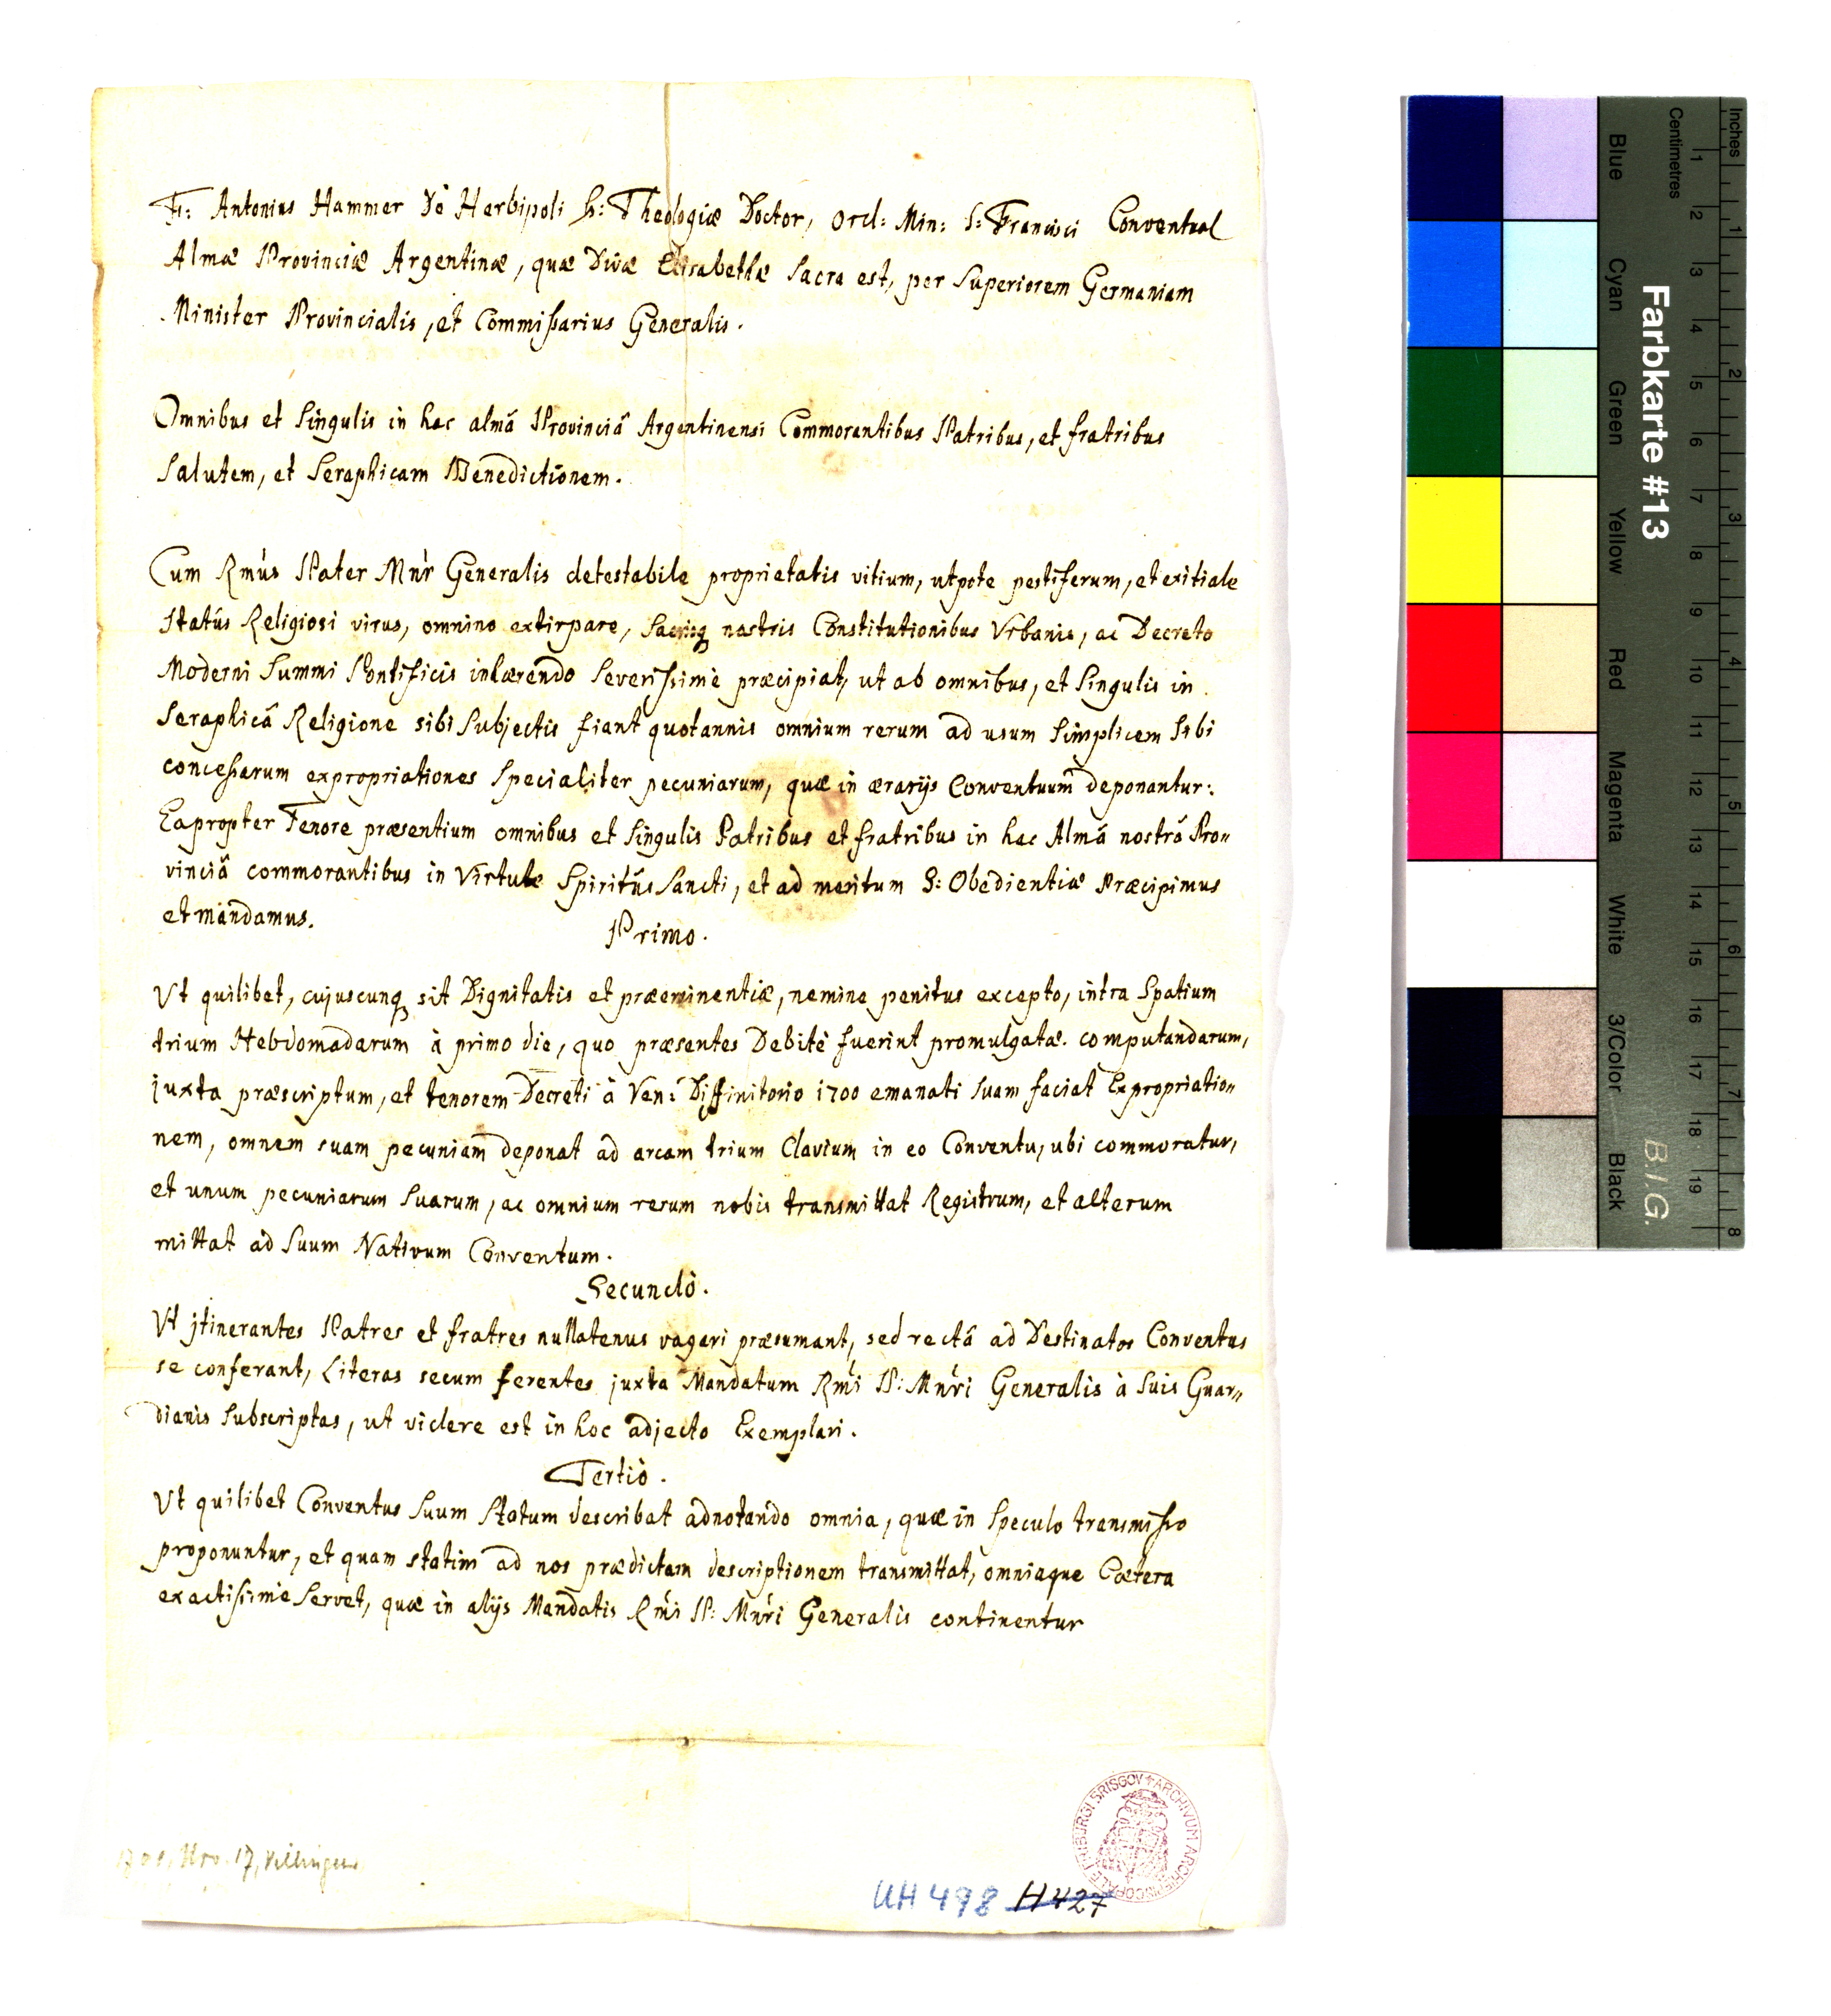 Fr: Antonius Hammer Dè Herbipoli S: Theologiæ Doctor, Ord: Min: S: Francisci Conventual
Almæ Provinciæ Argentinæ, quæ Divæ Elisabethæ Sacra est, per Superiorem Germaniam
Minister Provincialis, et Commissarius Generalis.
Omnibus et Singulis in hac almâ Provinciâ Argentinensi Commorantibus Patribus, et fratribus
Salutem, et Seraphicam Benedictionem.
Cum Rm̃us Pater Mnr̃ Generalis detestabile proprietatis vitium, utpote pestiferum, et exitiale
statûs Religiosi virus, omnino extirpare, Sacrisq nostris Constitutionibus Urbanis, ac Decreto
Moderni Summi Pontificis inhærendo Severissimè præcipiat, ut ab omnibus, et Singulis in
Seraphicâ Religione sibi Subjectis fiant quotannis omnium rerum ad usum Simplicem Sibi
concessarum expropriationes Specialiter pecuniarum, quæ in ærarijs Conventuum deponantur:
Eapropter Tenore præsentium omnibus et Singulis Patribus et fratribus in hac Almâ nostrâ Pro„
vinciâ commorantibus in Virtute Spiritûs Sancti, et ad meritum S: Obedientiæ Præcipimus
et mandamus.
Primo.
Ut quilibet, cujuscunq sit Dignitatis et præeminentiæ, nemine penitus excepto, intra Spatium
trium Hebdomadarum à primo die, quo præsentes Debitè fuerint promulgatæ computandarum,
juxta præscriptum, et tenorem Decreti à Ven: Diffinitorio 1700 emanati Suam faciat Expropriatio„
nem, omnem suam pecuniam deponat ad arcam trium Clavium in eo Conventu, ubi commoratur,
et unum pecuniarum Suarum, ac omnium rerum nobis transmittat Registrum, et alterum
mittat ad Suum Nativum Conventum.
Secundò.
Ut jtinerantes Patres et fratres nullatenus vagari præsumant, sed rectâ ad Destinatos Conventus
se conferant, Literas secum ferentes juxta Mandatum Rm̃i P: Mnr̃i Generalis à Suis Guar„
dianis Subscriptas, ut videre est in hoc adjecto Exemplari.
Tertiò.
Ut quilibet Conventus Suum Statum describat adnotando omnia, quæ in Speculo transmisso
proponuntur, et quam statim ad nos prædictam descriptionem transmittat, omniaque Cætera
exactissimè Servet, quæ in alijs Mandatis Rm̃i P: Mnr̃i Generalis continentur
17, Villingen
ARCHIVUM ARCHIEPISCOPALE FRIBURGI BRISGOV
UH 498 H 427
Farbkarte #13
B.I.G.
Inches
1 2 3 4 5 6 7 8
Centimetres
1 2 3 4 5 6 7 8 9 10 11 12 13 14 15 16 17 18 19
Blue Cyan Green Yellow Red Magenta White 3/Color Black